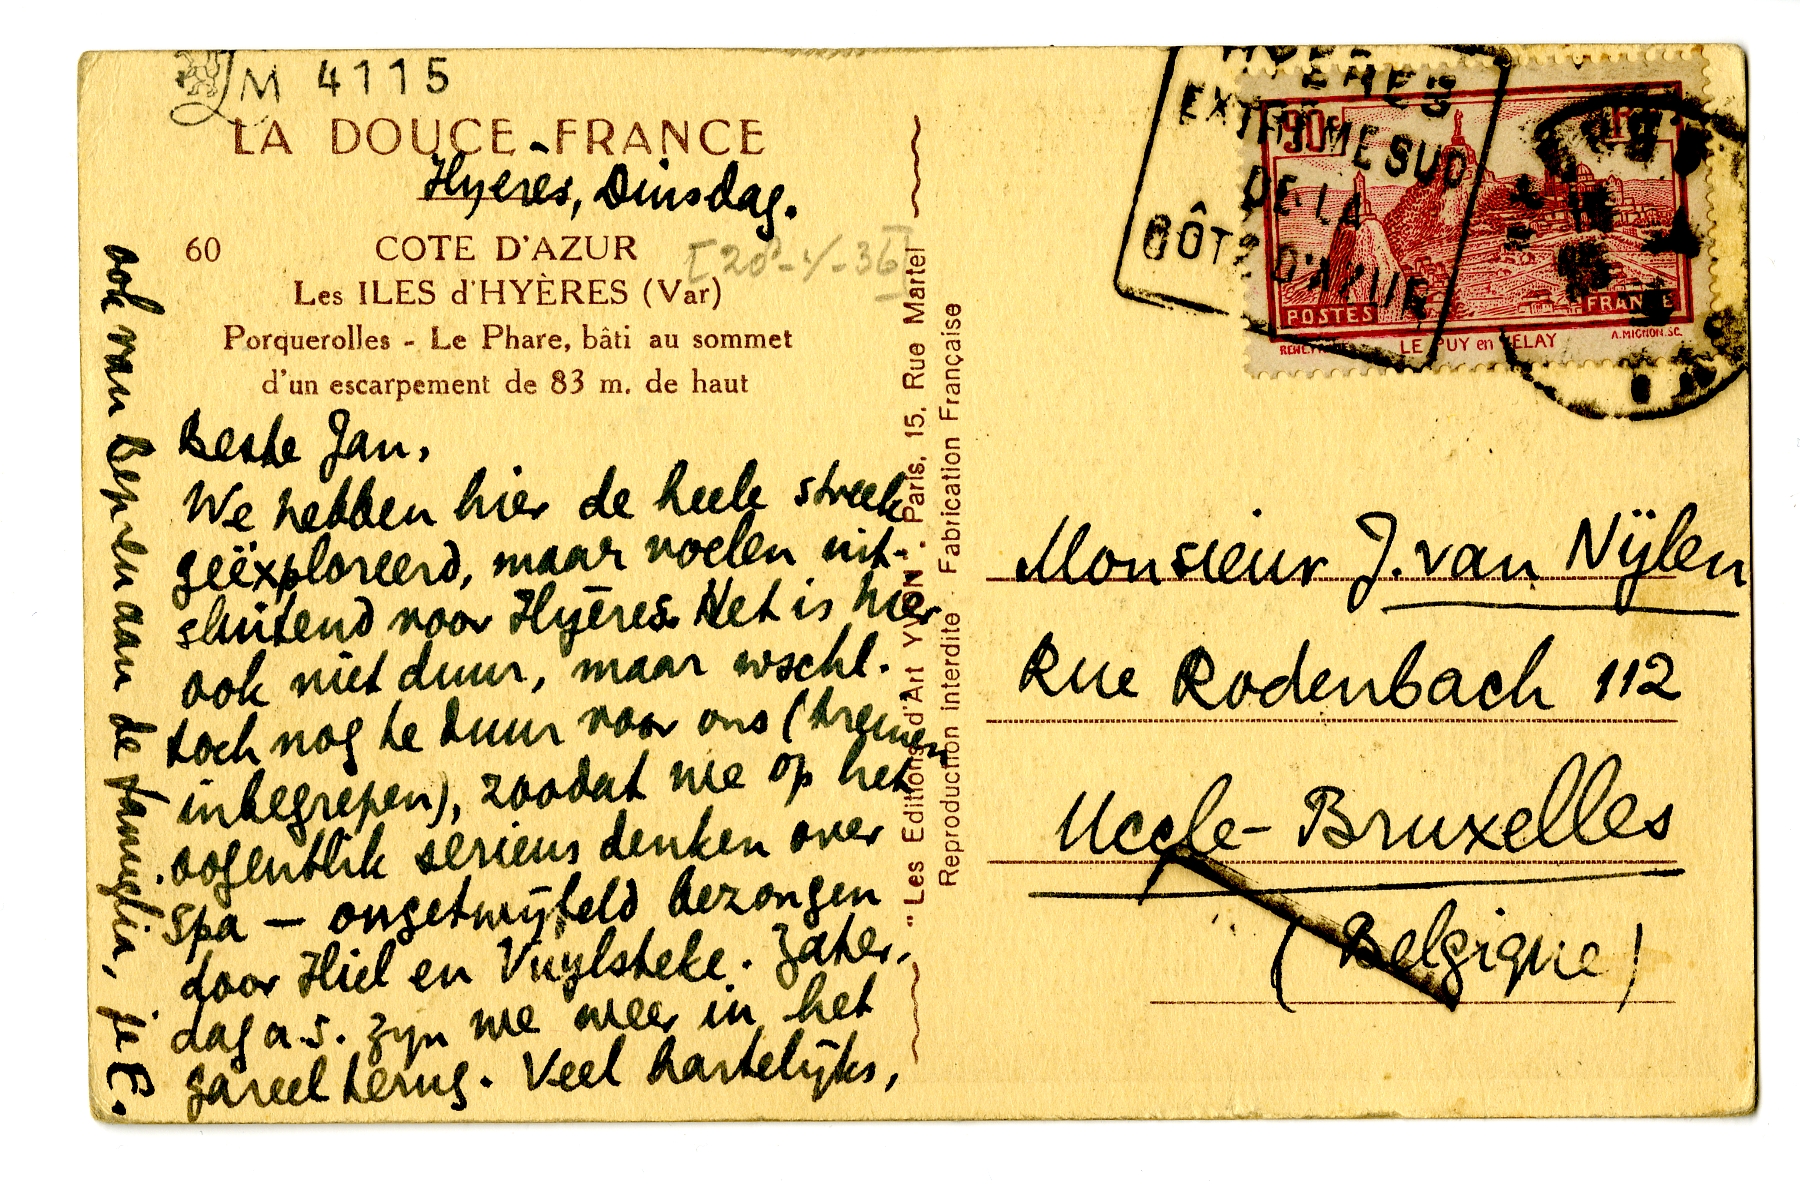 M 4115
LA DOUCE FRANCE
Hyères, Dinsdag.
60
COTE D'AZUR
Les ILES d'HYÈRES (Var)
Porquerolles - Le Phare, bâti au sommet
d'un escarpement de 83 m. de haut
Beste Jan,
We hebben hier de heele streek
geëxploreerd, maar voelen uit-
sluitend voor Hyères. Het is hier
ook niet duur, maar wschl.
toch nog te duur voor ons (treinen
inbegrepen), zoodat we op het
oogenblik serieus denken over
Spa — ongetwijfeld bezongen
door Hiel en Vuylsteke. Zater-
dag a.s. zijn we weer in het
gareel terug. Veel hartelijks,
ook van Bep en aan de famiglia, je E.
"Les Editions d'Art YVON" - Paris, 15, Rue Martel
Reproduction Interdite - Fabrication Française
EXTRÊME SUD
DE LA
CÔTE D'AZUR
90c
POSTES
FRANCE
LE PUY en VELAY
A.MIGNON.SC.
Monsieur J. van Nijlen
Rue Rodenbach 112
Uccle-Bruxelles
(Belgique)